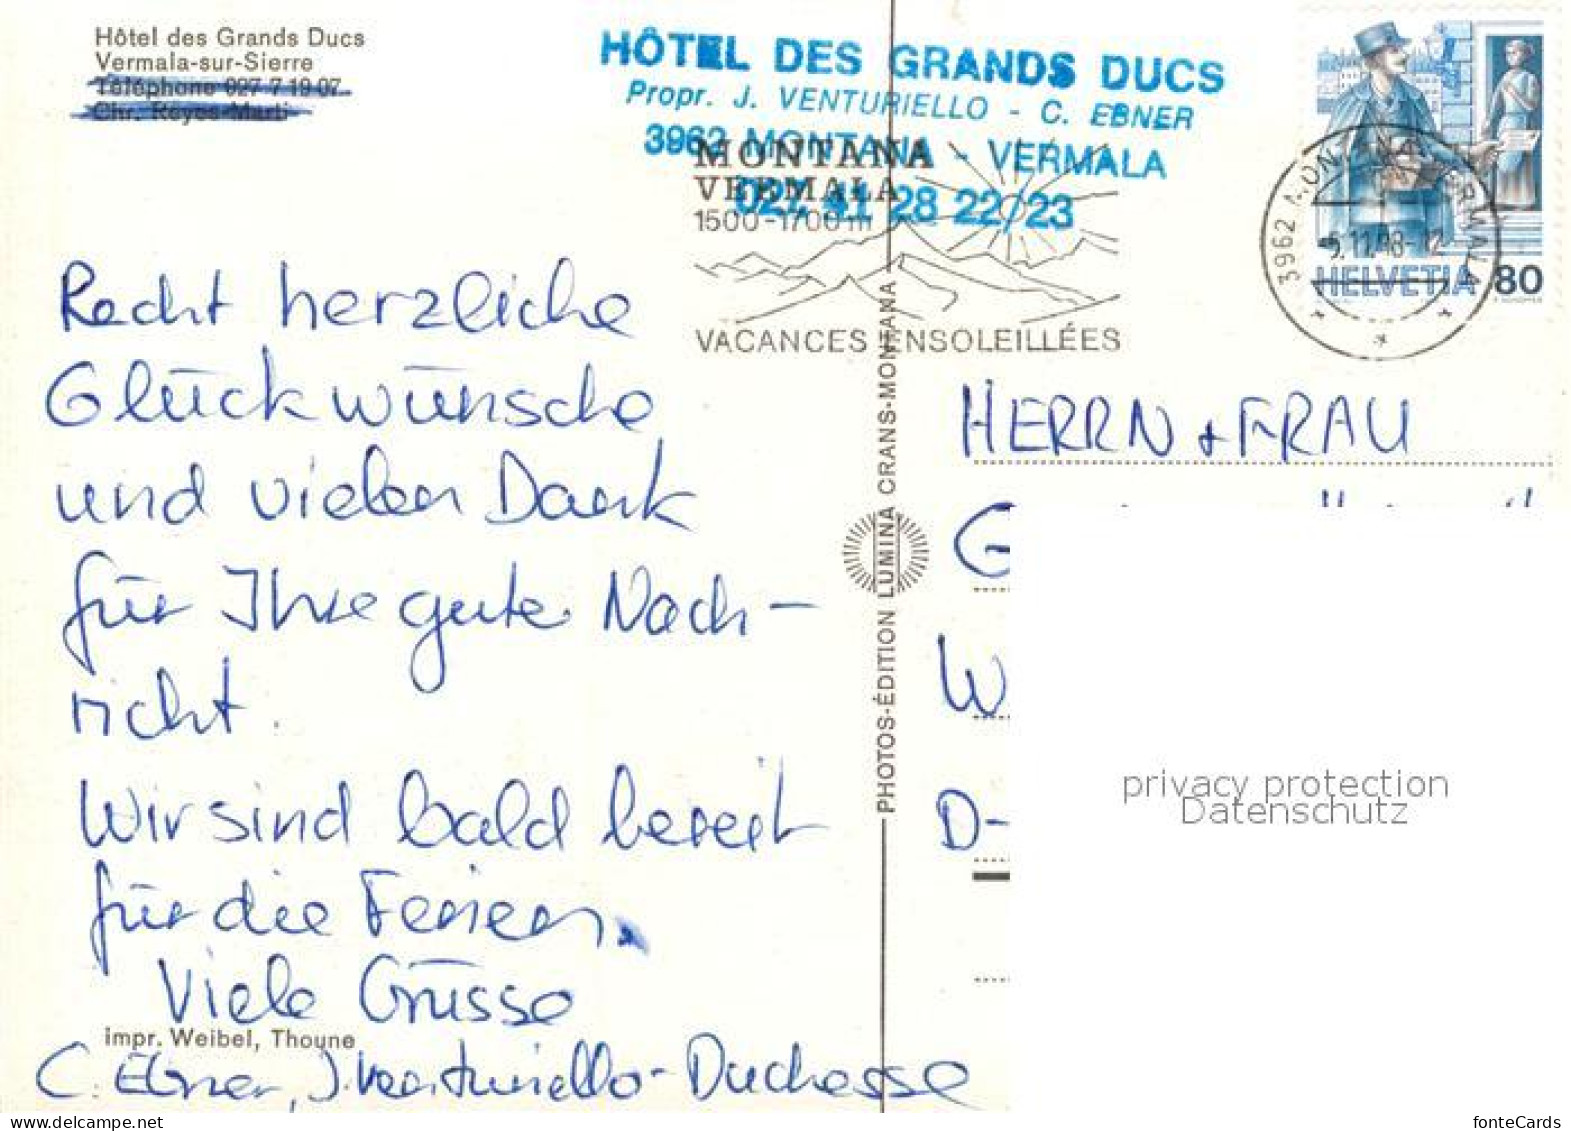 Hôtel des Grands Ducs
Vermala-sur-Sierre
Téléphone 027 7 19 07
Chr. Reyes-Marti
HÔTEL DES GRANDS DUCS
Propr. J. VENTURIELLO - C. EBNER
3962 MONTANA - VERMALA
027 41 28 22/23
MONTANA
VERMALA
1500-1700 m
VACANCES ENSOLEILLÉES
3962 MONTANA-VERMALA
HELVETIA 80
Recht herzliche
Glückwünsche
und vielen Dank
für Ihre gute Nach-
richt.
Wir sind bald bereit
für die Ferien.
Viele Grüsse
impr. Weibel, Thoune
C. Ebner, J. Venturiello-Duchesse
PHOTOS-ÉDITION LUMINA CRANS-MONTANA
HERRN + FRAU
G
W
D-
privacy protection
Datenschutz
fonteCards